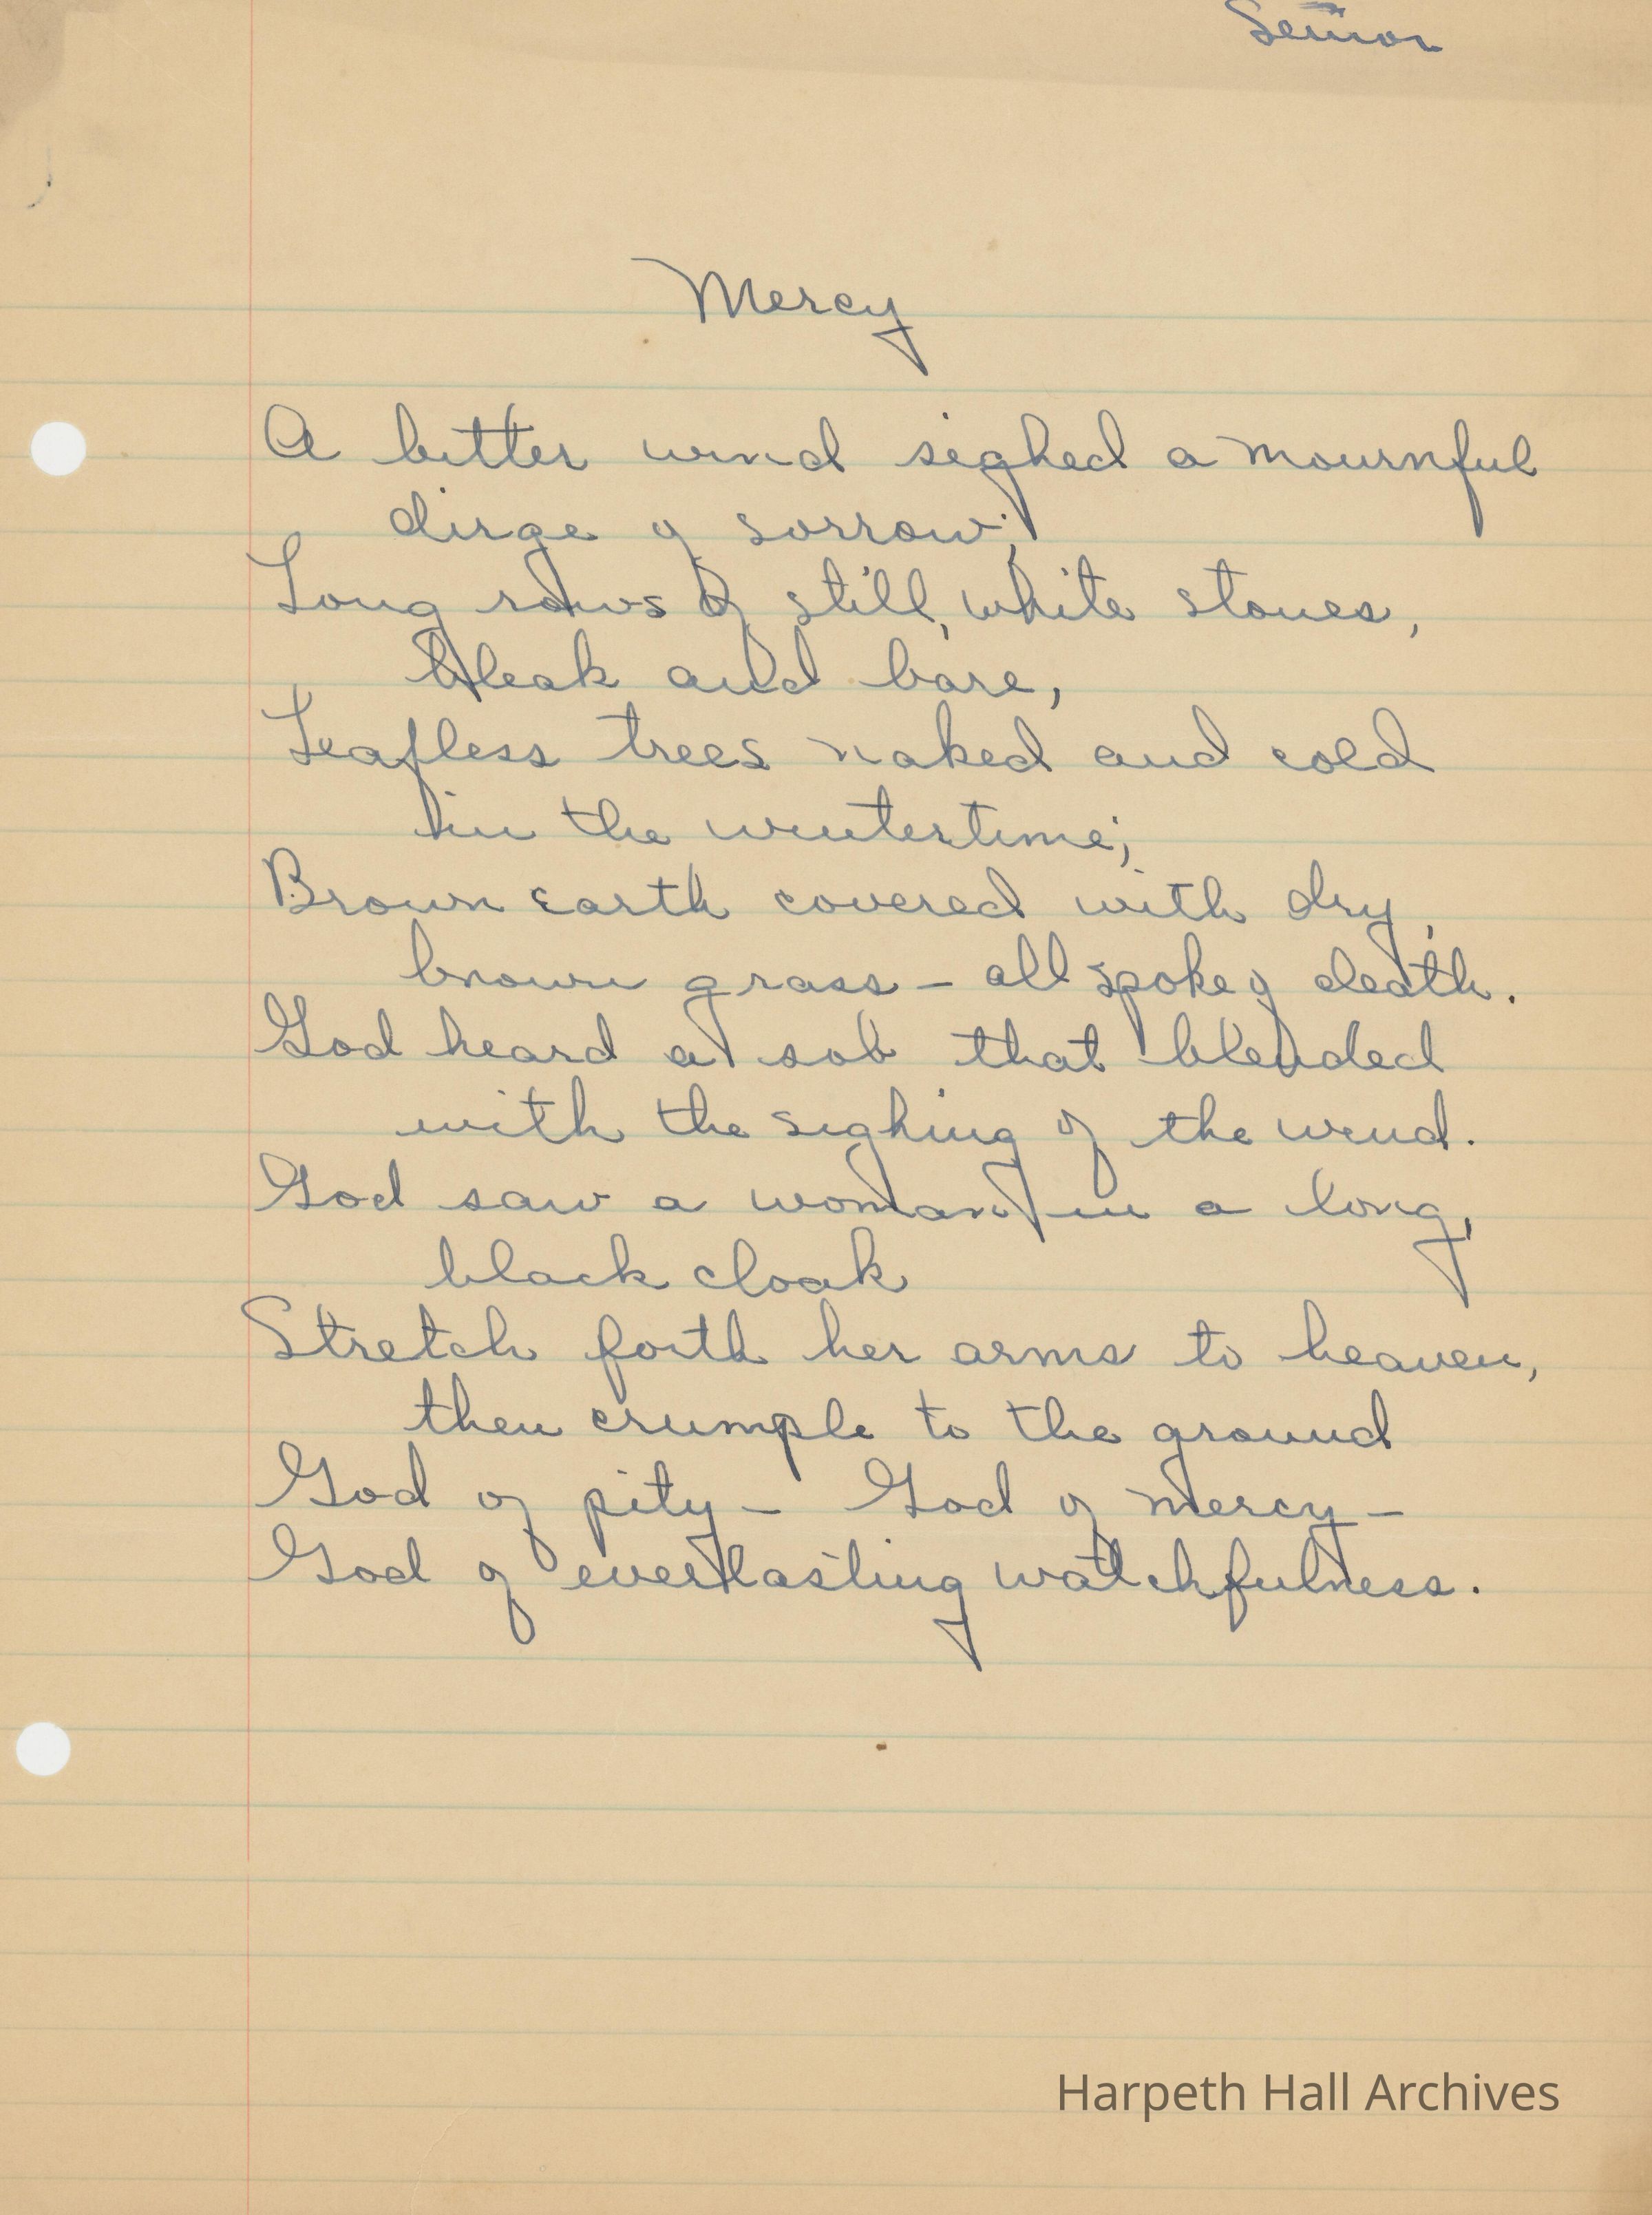 Senior
Mercy
A bitter wind sighed a mournful
dirge of sorrow;
Long rows of still, white stones,
bleak and bare,
Leafless trees naked and cold
in the wintertime;
Brown earth covered with dry,
brown grass - all spoke of death.
God heard a sob that blended
with the sighing of the wind.
God saw a woman in a long,
black cloak
Stretch forth her arms to heaven,
then crumple to the ground
God of pity - God of mercy -
God of everlasting watchfulness.
Harpeth Hall Archives